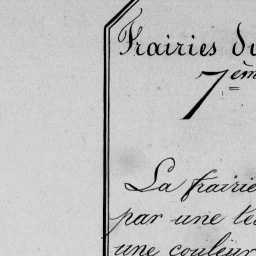 Frairies du
7ème
La frairie
par une te
une couleur